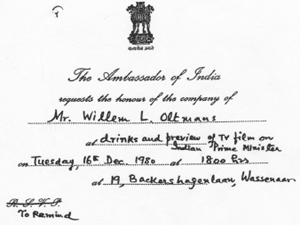 The Ambassador of India
requests the honour of the company of
Mr. Willem L. Oltmans
at drinks and preview of TV film on
Indian Prime Minister
on Tuesday, 16th Dec. 1980 at 1800 hrs
at 19, Backershagenlaan, Wassenaar
R.S.V.P.
To Remind